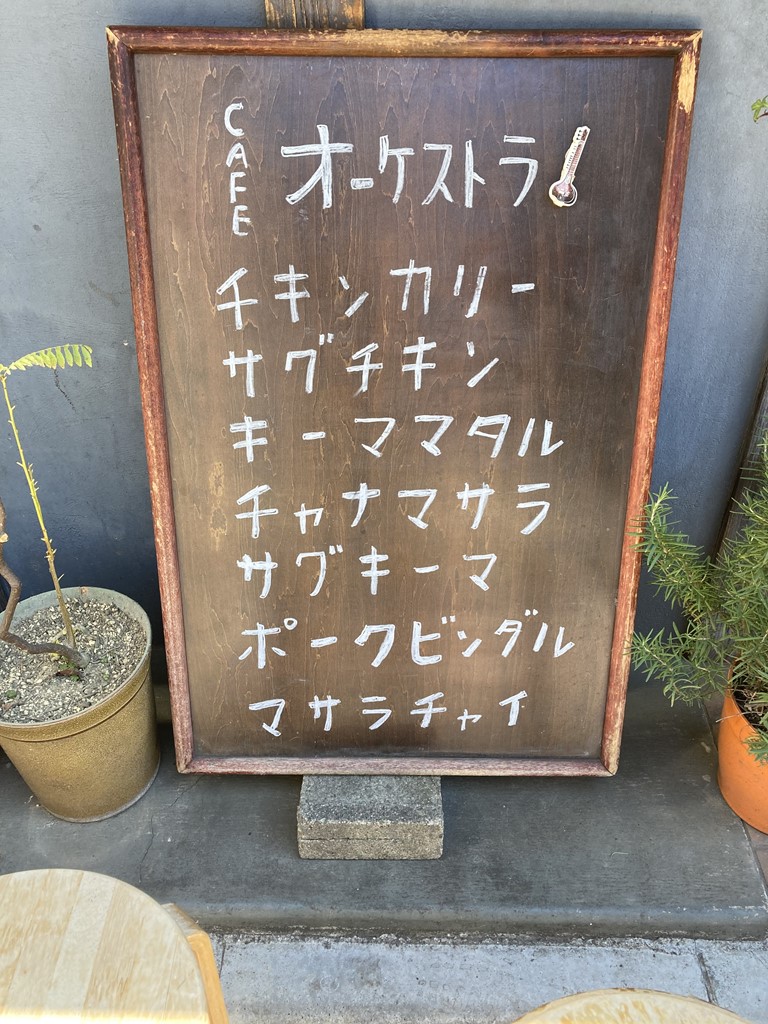 CAFE
オーケストラ
チキンカリー
サグチキン
キーママタル
チャナマサラ
サグキーマ
ポークビンダル
マサラチャイ